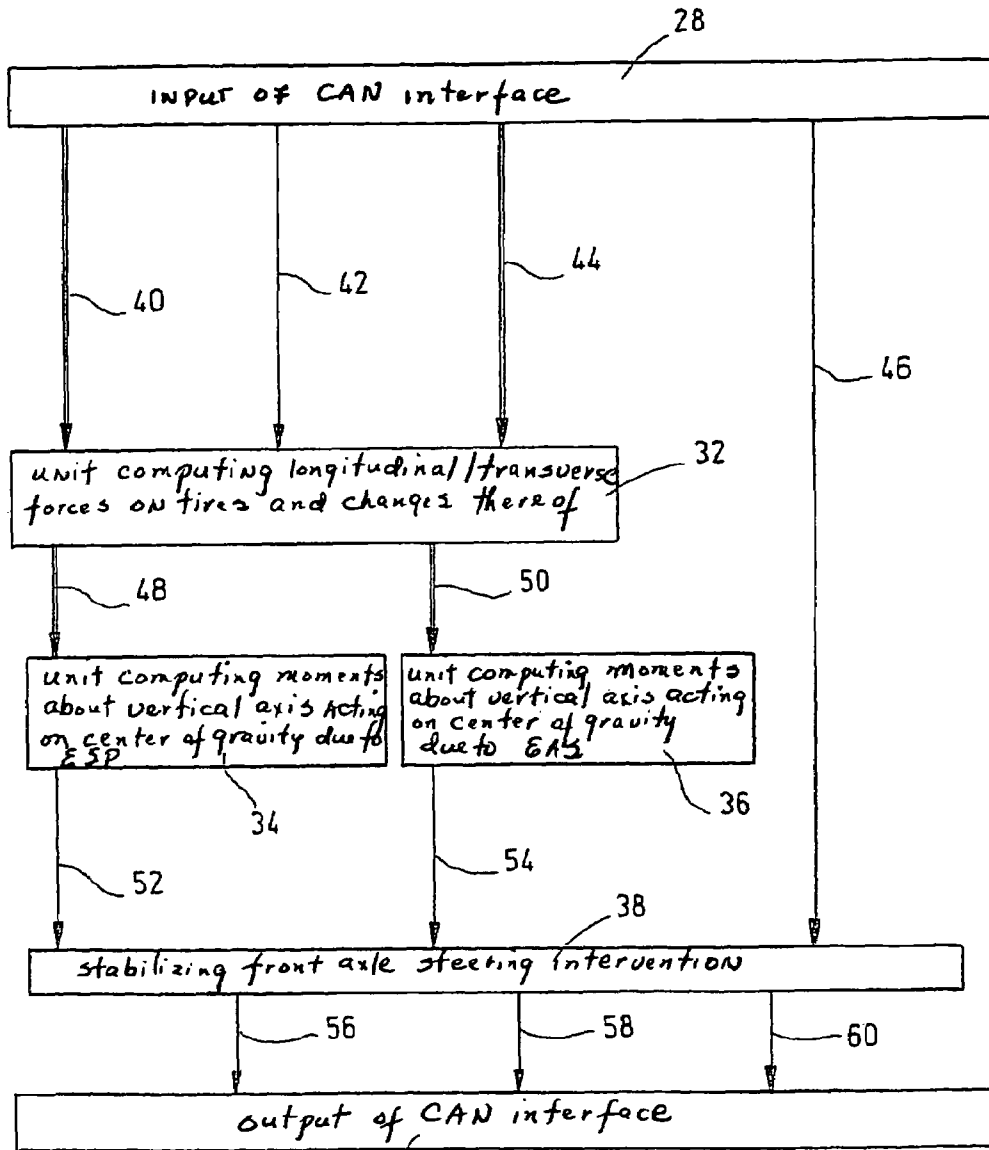 28
INPUT OF CAN interface
40
42
44
46
unit computing longitudinal/transverse
forces on tires and changes there of
32
48
50
unit computing moments
about vertical axis Acting
on center of gravity due to
ESP
unit computing moments
about vertical axis acting
on center of gravity
due to EAS
34
36
52
54
38
stabilizing front axle steering intervention
56
58
60
output of CAN interface